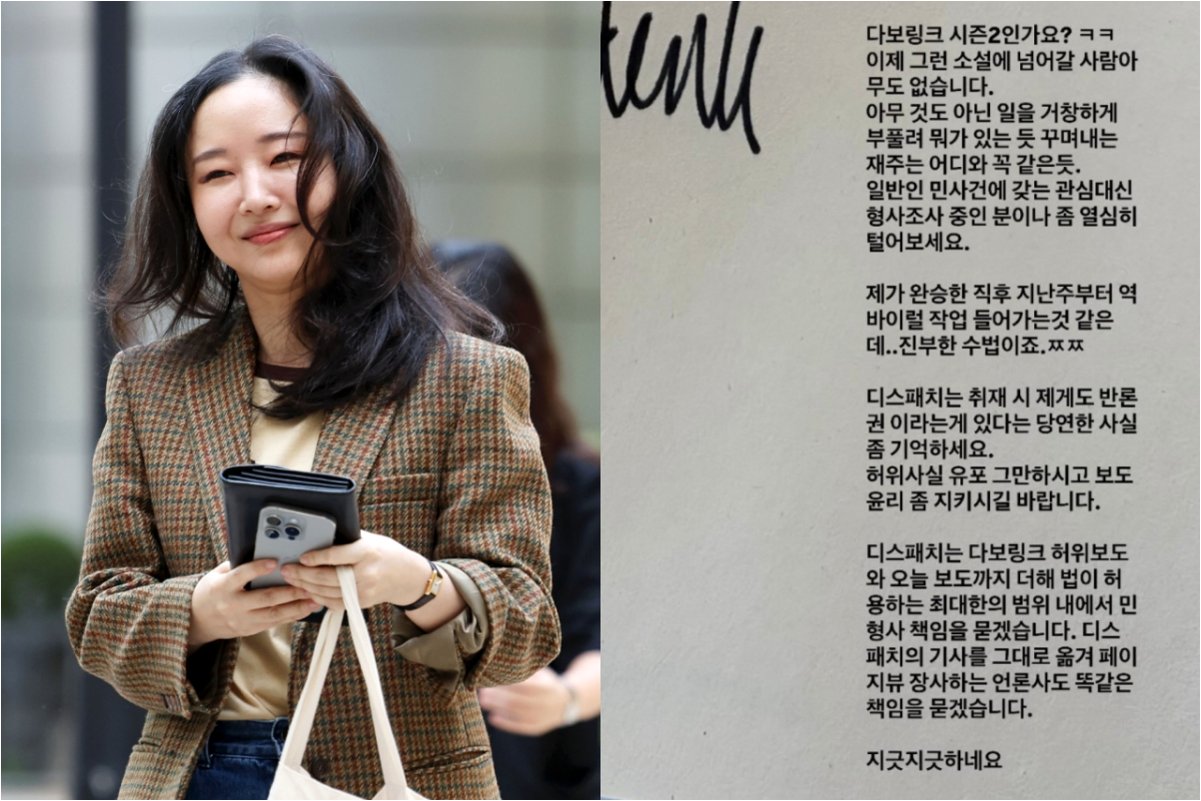 다보링크 시즌2인가요? ㅋㅋ
이제 그런 소설에 넘어갈 사람아
무도 없습니다.
아무 것도 아닌 일을 거창하게
부풀려 뭐가 있는 듯 꾸며내는
재주는 어디와 꼭 같은듯.
일반인 민사건에 갖는 관심대신
형사조사 중인 분이나 좀 열심히
털어보세요.
제가 완승한 직후 지난주부터 역
바이럴 작업 들어가는것 같은
데..진부한 수법이죠.ㅉㅉ
디스패치는 취재 시 제게도 반론
권 이라는게 있다는 당연한 사실
좀 기억하세요.
허위사실 유포 그만하시고 보도
윤리 좀 지키시길 바랍니다.
디스패치는 다보링크 허위보도
와 오늘 보도까지 더해 법이 허
용하는 최대한의 범위 내에서 민
형사 책임을 묻겠습니다. 디스
패치의 기사를 그대로 옮겨 페이
지뷰 장사하는 언론사도 똑같은
책임을 묻겠습니다.
지긋지긋하네요